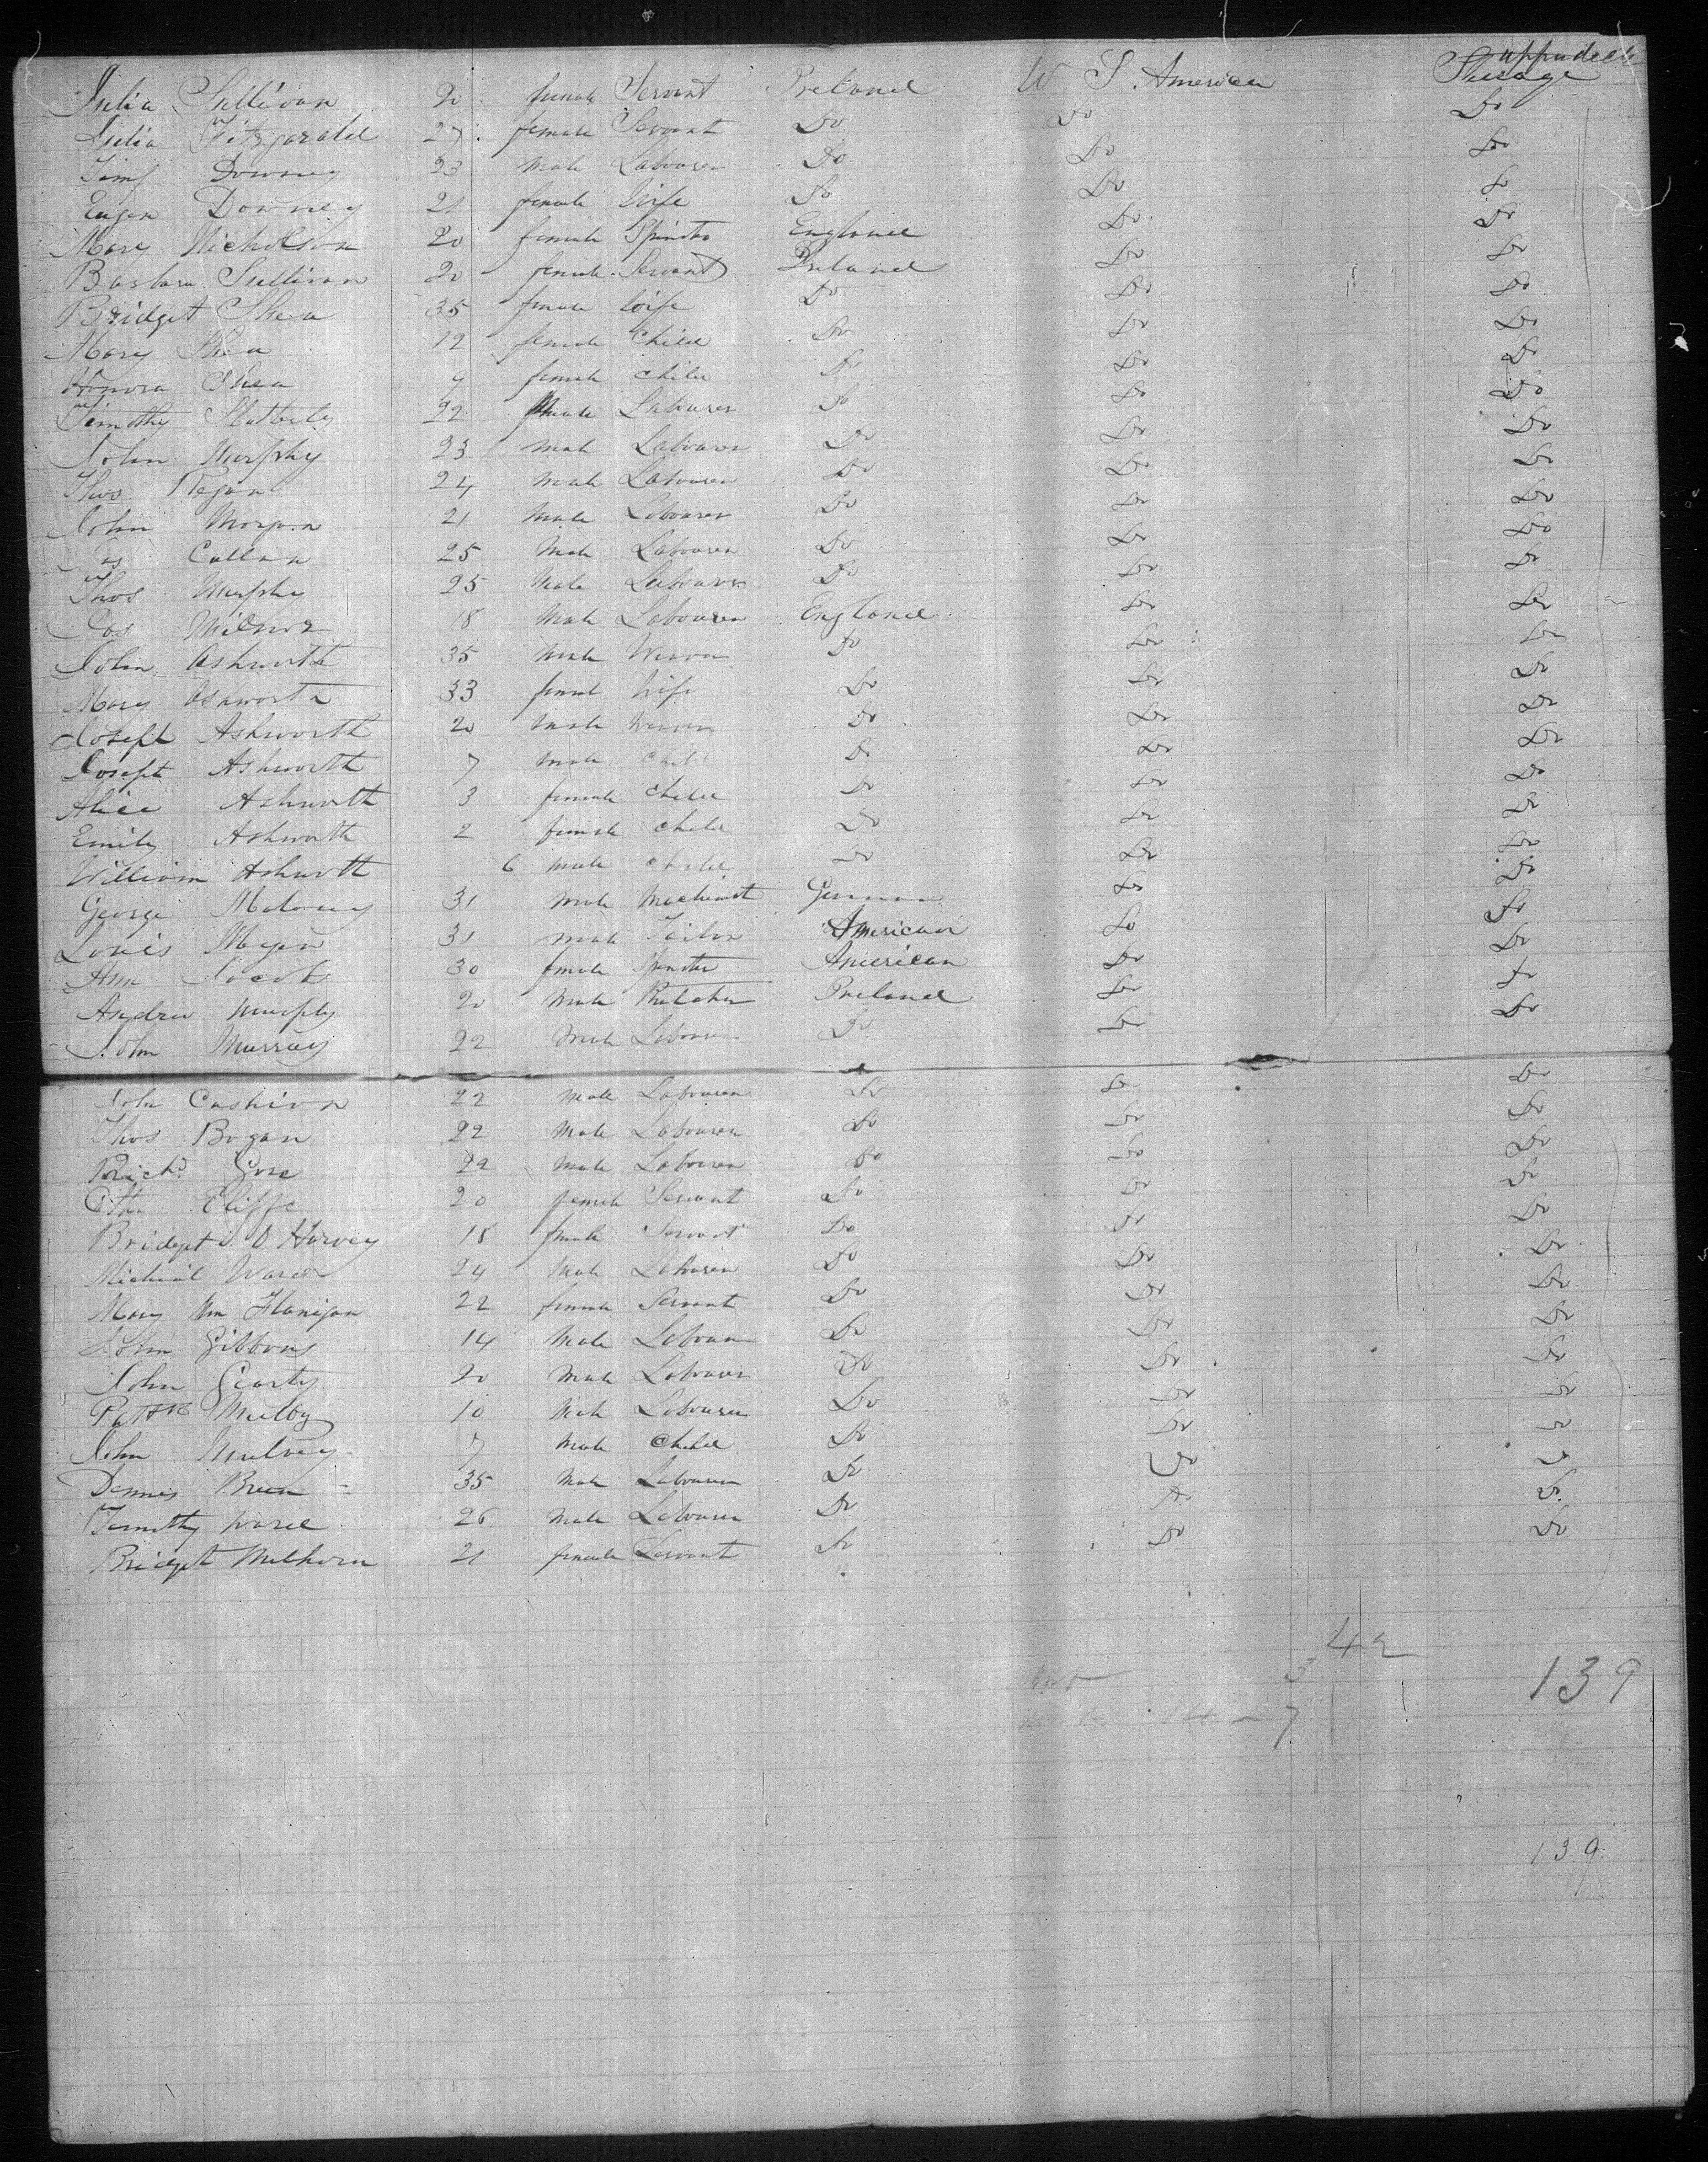 upperdeck
Julia Sullivan 20 female Servant Ireland U S. America Steerage
Julia Fitzgarald 27 female Servant Do Do Do
Timy Downey 23 male Labourer Do Do Do
Downey 21 female Wife Do Do Do
Mary Nicholson 20 female Spinster England Do Do
Barbara Sullivan 20 female Servant Ireland Do Do
Bridget Shea 35 female Wife Do Do Do
Mary Shea 12 female Child Do Do Do
Honora Shea 9 female Child Do Do Do
Timothy 22 male Labourer Do Do Do
John Murphy 23 male Labourer Do Do Do
Thos Regan 24 male Labourer Do Do Do
John Morgan 21 male Labourer Do Do Do
Jas Callan 25 male Labourer Do Do Do
Thos Murphy 25 male Labourer Do Do Do
18 male Labourer England Do Do
John Ashworth 35 male Weaver Do Do Do
Mary Ashworth 33 female Wife Do Do Do
Joseph Ashworth 20 male Weaver Do Do Do
Joseph Ashworth 7 male Child Do Do Do
Alice Ashworth 3 female Child Do Do Do
Emily Ashworth 2 female Child Do Do Do
William Ashworth 6 male Child Do Do Do
George Maloney 31 male Machinist German Do Do
Louis Meyer 31 male Tailor American Do Do
Ann Jacobs 30 female Spinster American Do Do
Andrew Murphy 20 male Butcher Ireland Do Do
John Murray 22 male Labourer Do Do Do
John Cashion 22 male Labourer Do Do Do
Thos Bogan 22 male Labourer Do Do Do
Richd Gore 22 male Labourer Do Do Do
Cliffe 20 female Servant Do Do Do
Bridget O Harvey 18 female Servant Do Do Do
Michael Ward 24 male Labourer Do Do Do
Mary Ann Flanigan 22 female Servant Do Do Do
John Gibbons 14 male Labourer Do Do Do
John Gearty 20 male Labourer Do Do Do
Patsk 10 male Labourer Do Do Do
John Mulvey 7 male Child Do Do Do
Dennis Brien 35 male Labourer Do Do Do
Timothy Ward 26 male Labourer Do Do Do
Bridget Mulhorn 21 female Servant Do Do Do
42
3 139
7
139